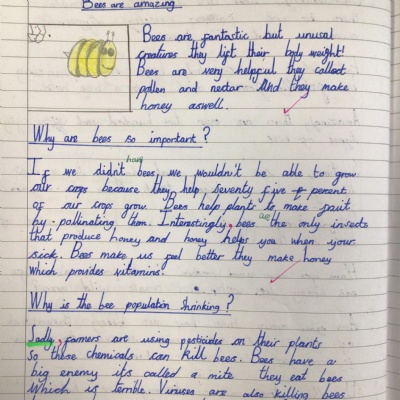 Bees are amazing
Bees are fantastic but unusual
creatures they lift their body weight!
Bees are very helpful they collect
pollen and nectar and they make
honey aswell.
Why are bees so important?
If we didn't have bees, we wouldn't be able to grow
our crops because they help seventy five percent
of our crops grow. Bees help plants to make fruit
by pollinating them. Interestingly, bees are the only insects
that produce honey and honey helps you when your
sick. Bees make us feel better they make honey
which provides vitamins.
Why is the bee population shrinking?
Sadly, farmers are using pesticides on their plants
so these chemicals can kill bees. Bees have a
big enemy its called a mite they eat bees
Which is terrible. Viruses are also killing bees